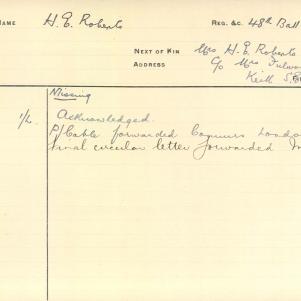 NAME H. E. Roberts REG. &C. 48th Batt
NEXT OF KIN Mrs H. E. Roberts
ADDRESS C/o Mrs
Keith S.
Missing
1/2. Acknowledged.
P/Cable forwarded Commrs London
Final circular letter forwarded